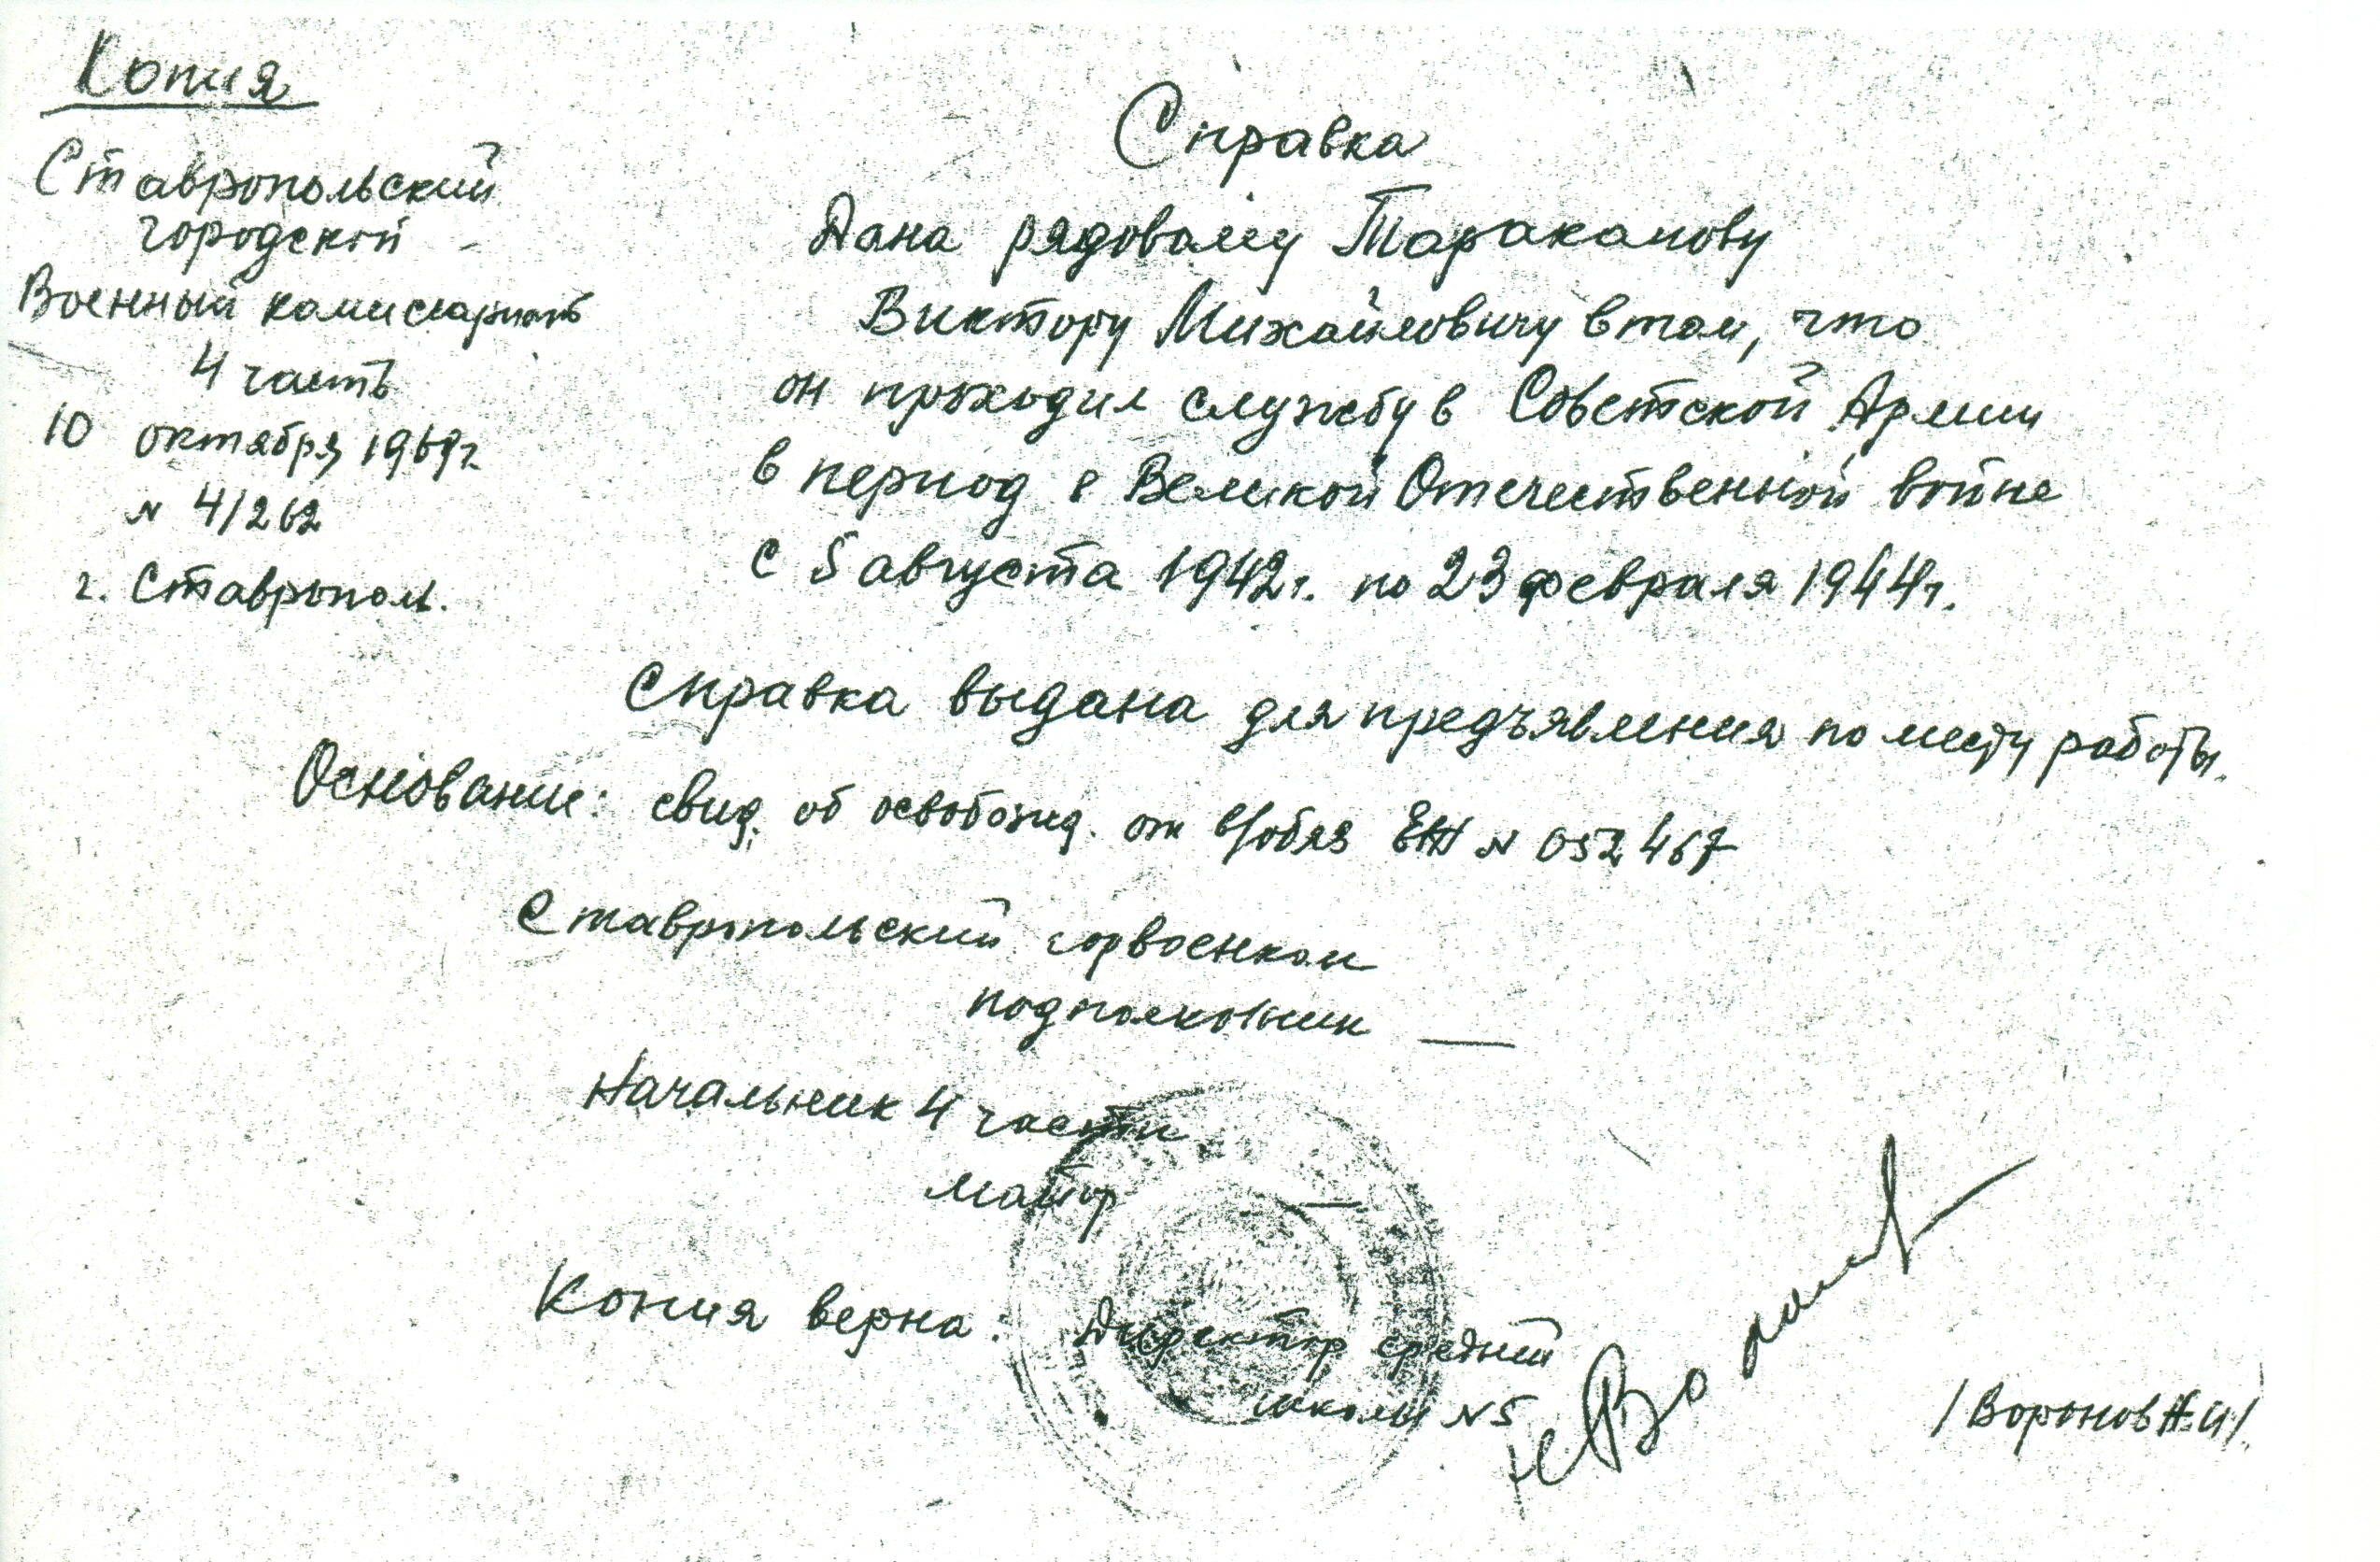 Копия
Ставропольский
городской
Военный комисариать
4 часть
10 октября 1969г.
N 4/262
г. Ставрополь.
Справка
Дана рядовому Тараканову
Виктору Михайловичу в том, что
он проходил службу в Советской Армии
в период в Великой Отечественной войне
с 5 августа 1942г. по 23 февраля 1944г.
Справка выдана для предъявления по месту работы.
Основание: свид. об освобожд. от в/обяз ЕЖ N 052467
Ставропольский горвоенком
подполковник —
Начальник 4 части
майор —
Копия верна: Директор средний
школы N5
/Воронов Н.И/.